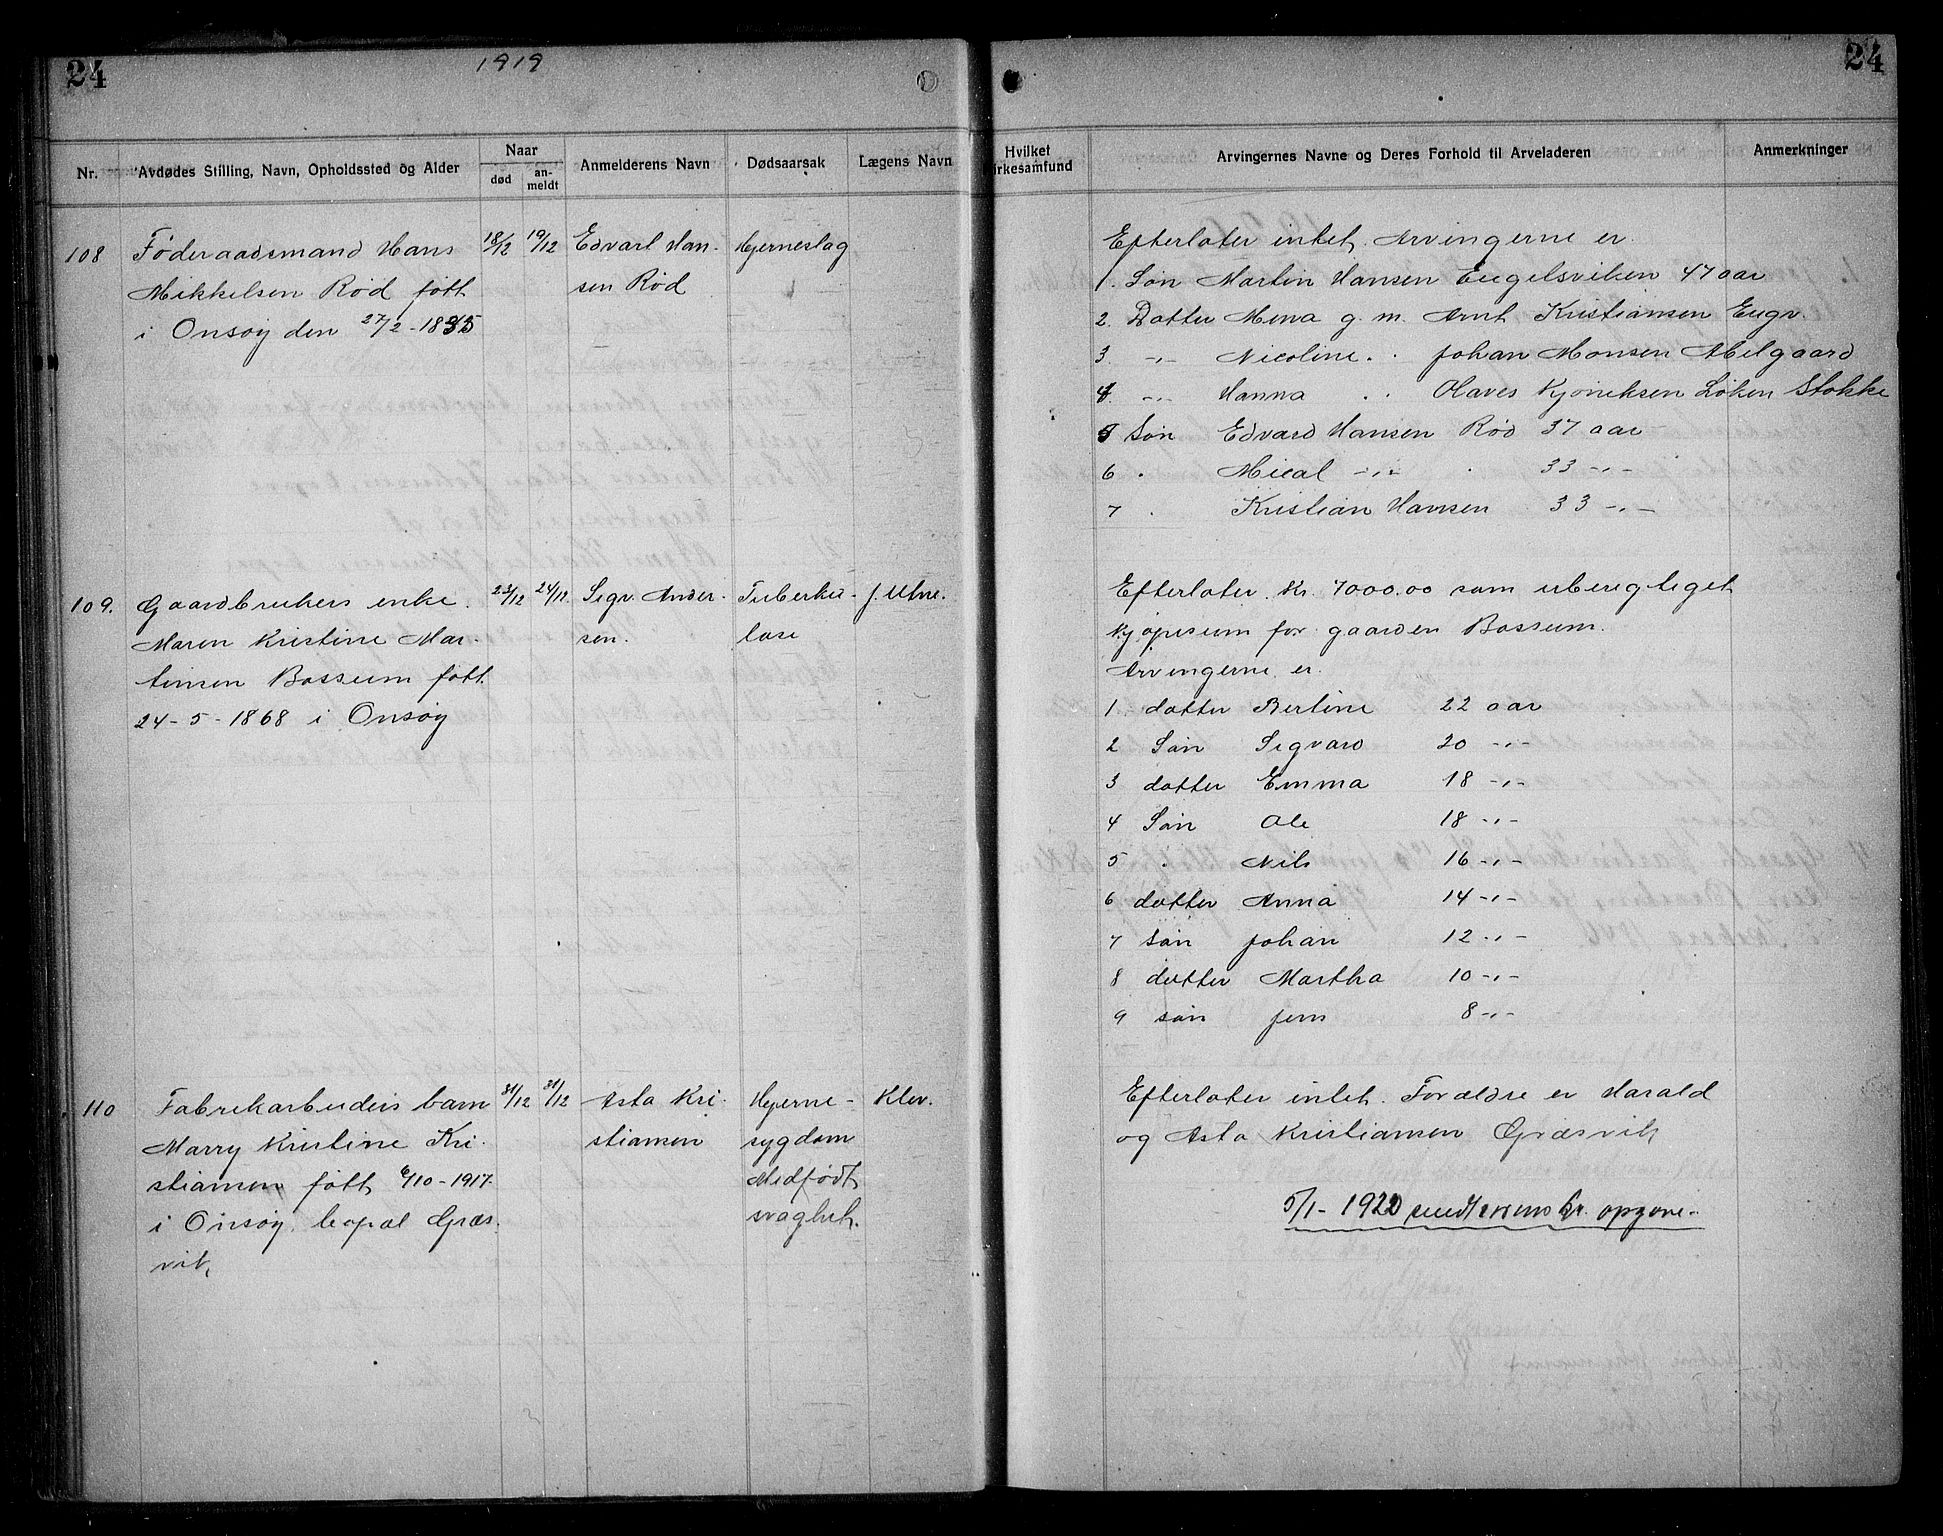 24
1919
24
Nr.
Avdødes Stilling, Navn, Opholdssted og Alder
Naar
død
an-
meldt
Anmelderens Navn
Dødsaarsak
Lægens Navn
Hvilket
irkesamfund
Arvingernes Navne og Deres Forhold til Arveladeren
Anmerkninger
108
Føderaadsmand Hans
Mikkelsen Rød født
i Onsøy den 27/2-1835
18/12
19/12
Edvart Han-
sen Rød
Hjerneslag
Efterlater intet. Arvingerne er
1. Søn Martin Hansen Engelsviken 47 aar
2. Datter Mina g. m. Arnt Kristiansen Engv.
3. -"- Nicoline . . Johan Monsen Melgaard
4. -"- Hanna . . Olaves Løken Stokke
5 Søn Edvard Hansen Rød 37 aar
6 . Mical -"- . 33 -"-
7 . Kristian Hansen 33 -"-
109.
Gaardbrukers enke.
Maren Kristine Mar-
tinsen Bossum født
24-5-1868 i Onsøy
23/12
24/12.
Sigv. Ander-
sen.
Tuberku-
lose
J. Utne.
Efterlater. Kr. 7000.00 som uberegtiget
kjøpesum for gaarden Bossum.
Arvingerne er.
1 datter Bertine 22 aar
2 Søn Sigvard 20 -"-
3 datter Emma 18 -"-
4 Søn Ole 18 -"-
5 . Nils 16 -"-
6 datter Anna 14 -"-
7 søn Johan 12 -"-
8 datter Martha 10 -"-
9 søn Jens 8 -"-
110
Fabrikarbeiders barn
Marry Kristine Kri-
stiansen født 6/10-1917
i Onsøy, bopæl Græs-
vik
31/12
31/12
Asta Kri-
stiansen
Hjerne-
sygdom
Medfødt
svaghet.
Klev.
Efterlater intet. Forældre er Harald
og Asta Kristiansen Græsvik
5/1-1920 sendt opgave-